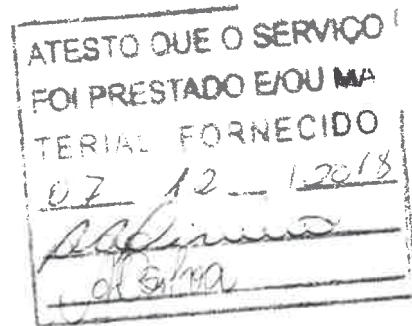 ATESTO QUE O SERVIÇO
FOI PRESTADO E/OU MA
TERIAL FORNECIDO
07 12 / 2018